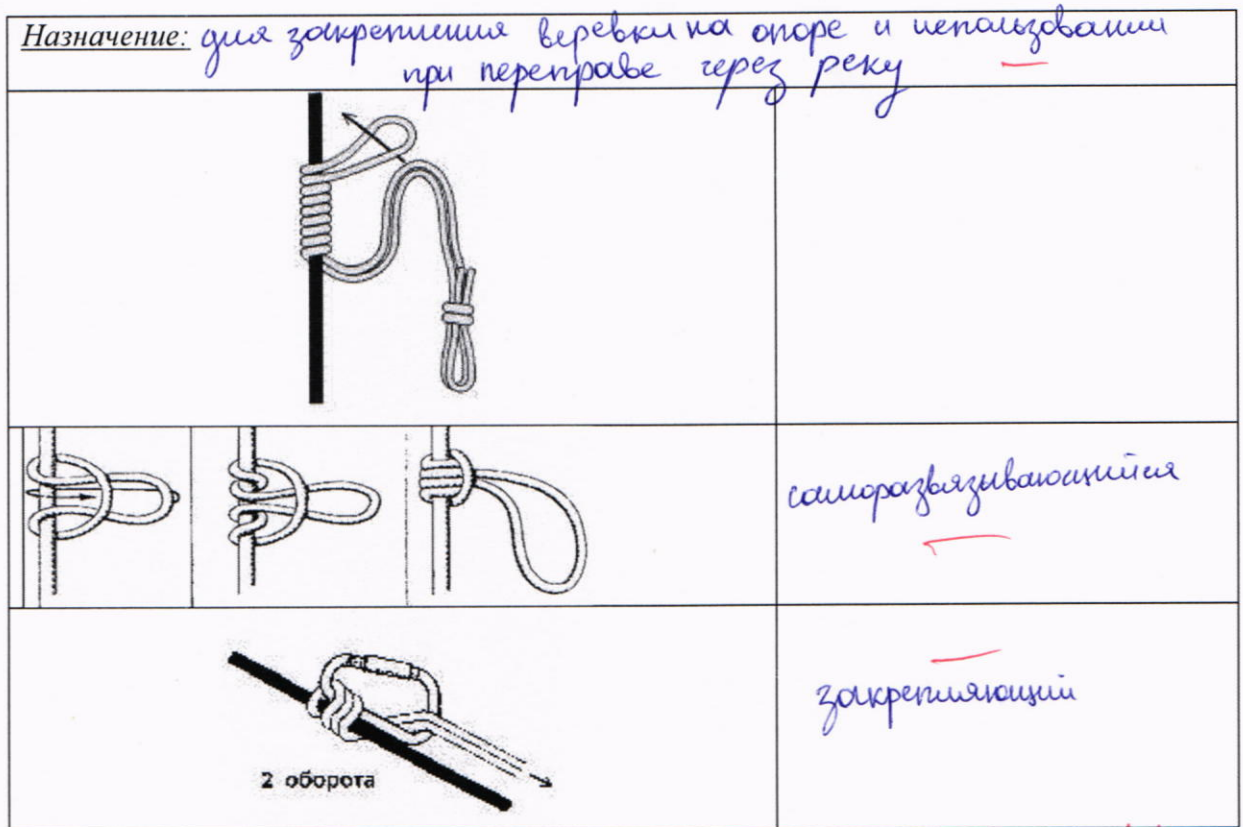 Назначение: для закрепления веревки на опоре и использовании
при переправе через реку
саморазвязывающийся
закрепляющий
2 оборота